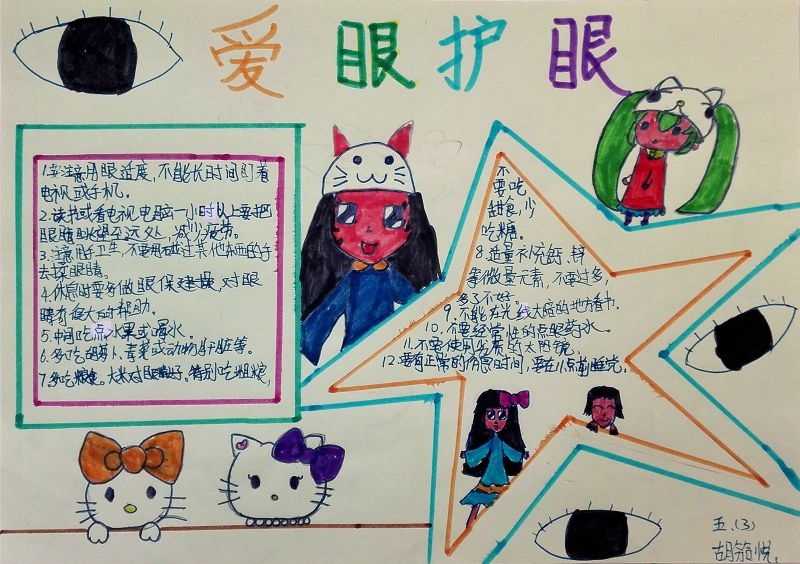 爱眼护眼
1.要注意用眼适度,不能长时间盯着
电视或手机。
2.读书或者电视电脑一小时以上要把
眼睛眺望至远处,减少疲劳。
3.注意卫生,不要用碰过其他东西的手
去揉眼睛。
4.休息时要多做眼保健操,对眼
睛有很大的帮助。
5.中间吃点水果或喝水。
6.多吃胡萝卜、青菜或动物肝脏等。
7.多吃粮食,大米对眼睛好。特别吃粗粮,
不
要吃
甜食,少
吃糖。
8.适量补充钙、锌
等微量元素,不要过多,
多了不好。
9.不能在光线太暗的地方看书。
10.不要经常性的点眼药水。
11.不要使用劣质的太阳镜。
12.要有正常的作息时间,要在11点前睡完。
五.(3)
胡 悦.